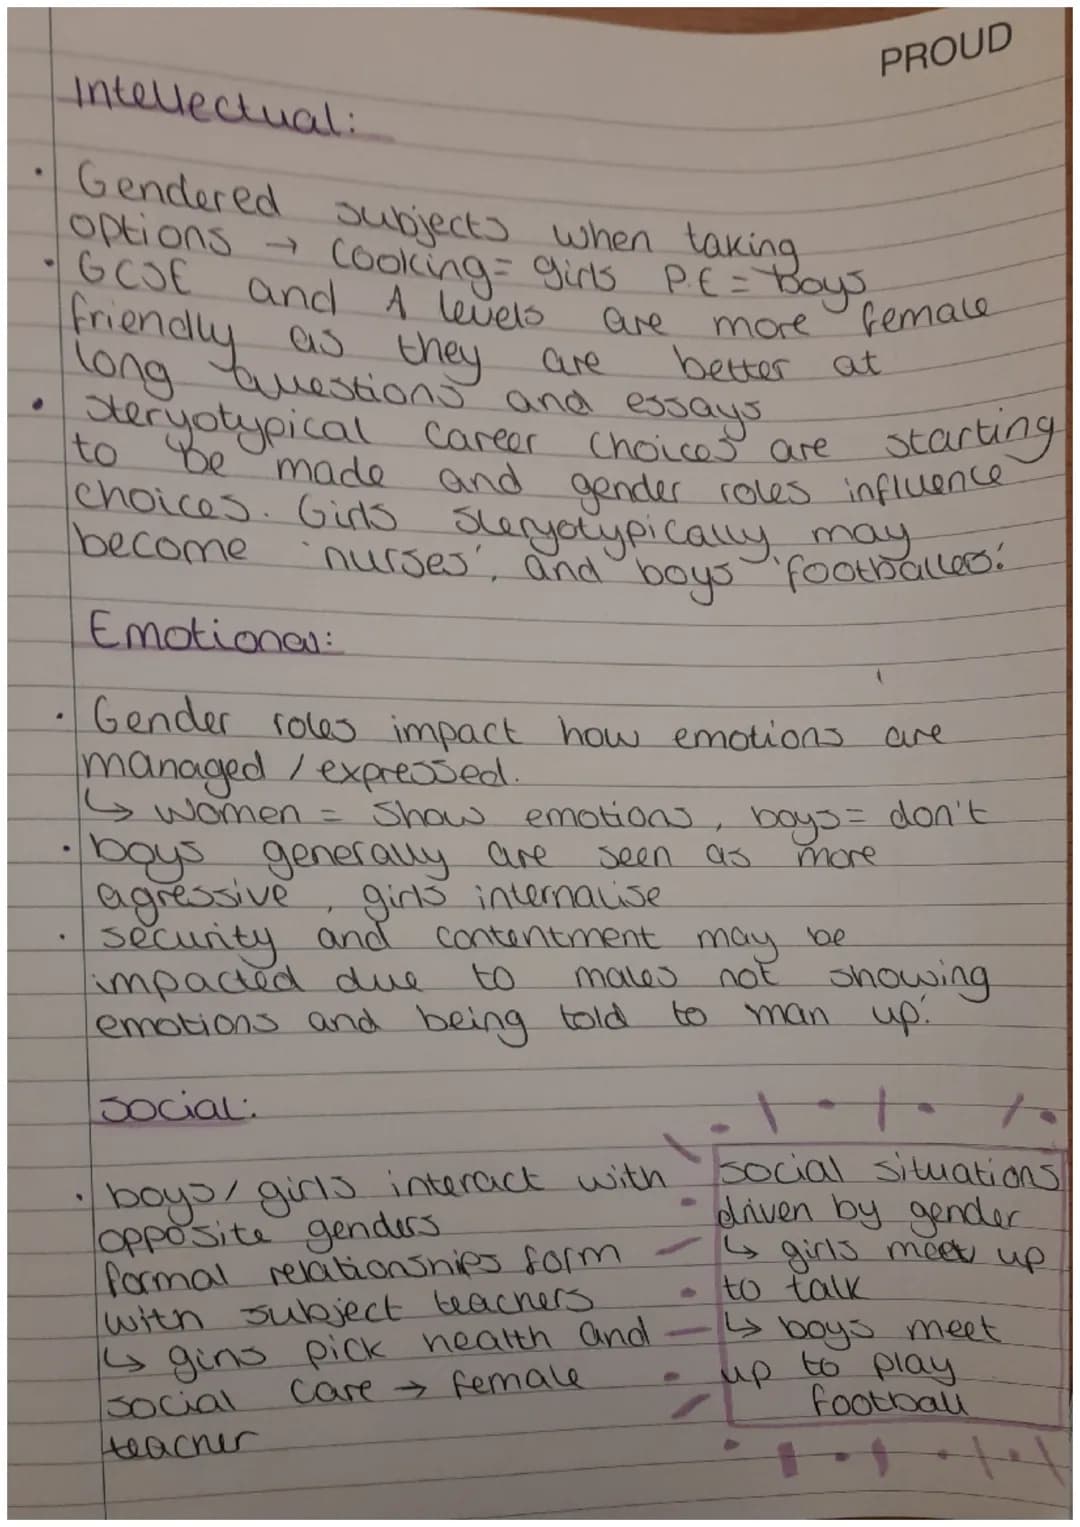 PROUD
Intellectual:
• Gendered subjects when taking
options → Cooking = girls P.E = Boys
• GCSE and A levels are more female
friendly as they are better at
long questions and essays
• Steryotypical career choices are starting
to be made and gender roles influence
choices. Girls steryotypically may
become 'nurses', and boys 'footballers'.
Emotional:
• Gender roles impact how emotions are
managed / expressed.
↳ women = show emotions, boys = don't
• boys generally are seen as more
agressive, girls internalise
• security and contentment may be
impacted due to males not showing
emotions and being told to 'man up'.
Social:
• boys/girls interact with
opposite genders
formal relationships form
with subject teachers
↳ girls pick health and
social care → female
teacher
social situations
driven by gender
↳ girls meet up
to talk
↳ boys meet
up to play
football